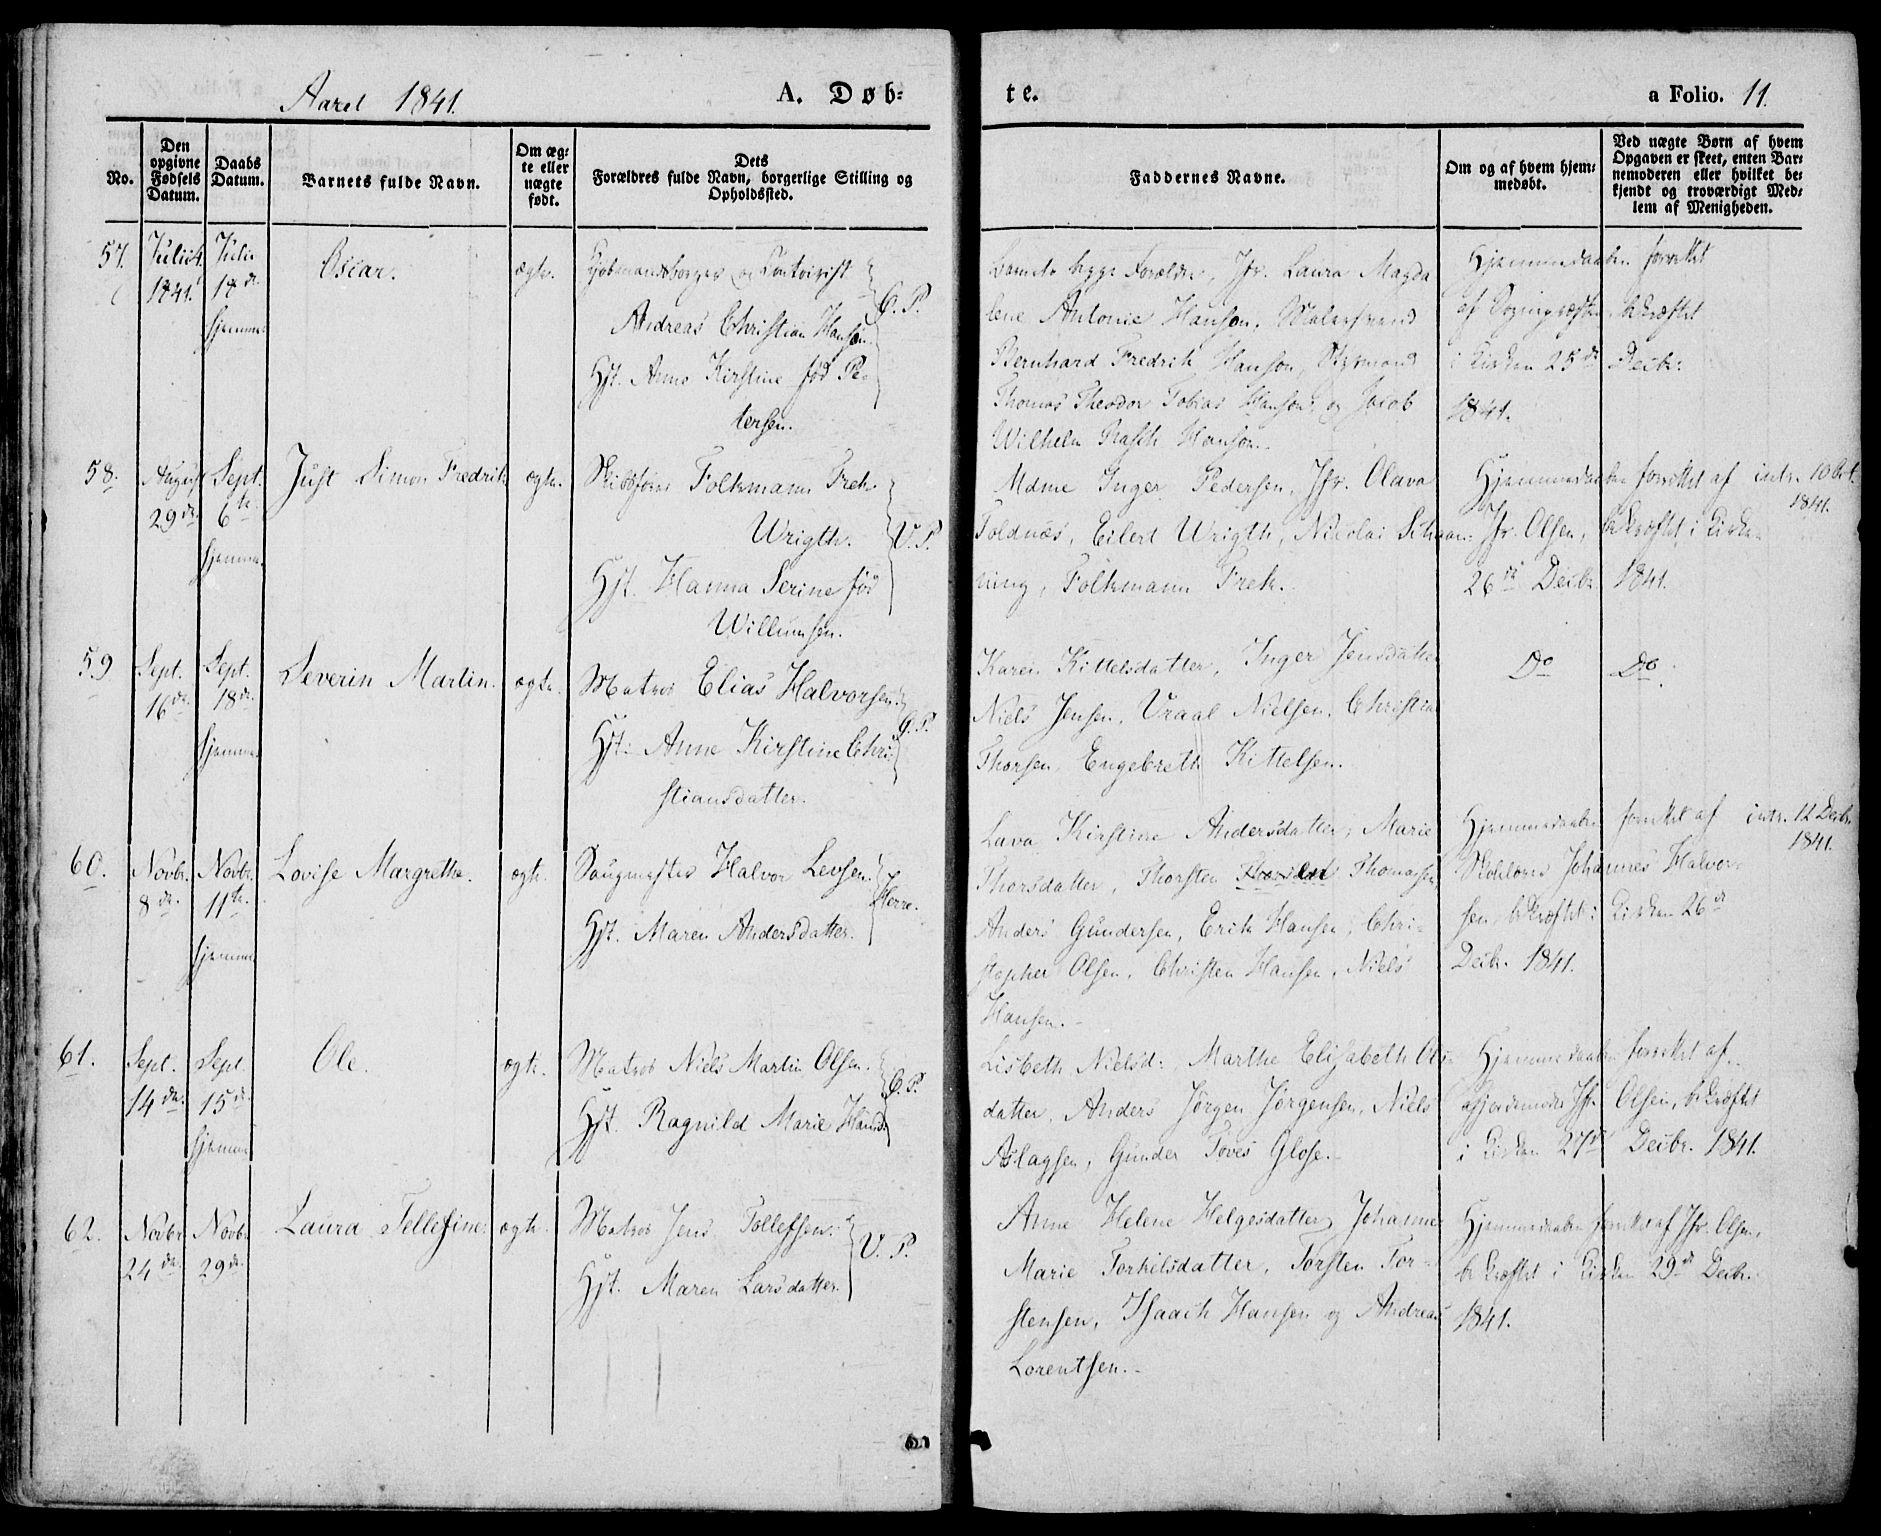 Aaret 1841.
A. Døb-
te.
a Folio. 11.
No.
Den opgivne Fødsels Datum.
Daabs Datum.
Barnets fulde Navn.
Om ægte eller uægte født.
Dets
Forældres fulde Navn, borgerlige Stilling og
Opholdssted.
Faddernes Navne.
Om og af hvem hjem-
medøbt.
Ved uægte Børn af hvem
Opgaven er skeet, enten Bar-
nemoderen eller hvilket be-
kjendt og troværdigt Med-
lem af Menigheden.
57.
Julii 4.
1841.
Julii
18de
hjemme
Oscar.
ægte.
Kjøbmandsborger og
Andreas Christian Hansen
Hst. Anne Kirstine fød Pe-
tersen.
C. P.
Barnets begge Forældre, Jfr. Laura Magda
lene Antonie Hanson, Malersvend
Bernhard Fredrik Hanson, Styrmand
Thomas Theodor Tobias Hanson, og Jacob
Wilhelm Rasch Hanson.
Hjemmedaaben forrettet
af Sognepræsten, bekræftet
i Kirken 25de Decbr.
1841.
58.
August
29de
Sept.
6te
hjemme
Just Simon Fredrik
ægte.
Skibsfører Folkmann Frek
Wrigth.
Hst. Hanna Serine fød
Willumsen.
V. P.
Mdme Inger Pedersen, Jfr. Olava
Foldnæs, Eilert Wrigth, Nicolai Schaan-
ning, Folkmann Frek.
Hjemmedaaben forrettet af
Jfr. Olsen, bekræftet i Kirken
26de Decbr. 1841.
intr. 10 Oct.
1841.
59
Sept.
16de
Sept.
18de
hjemme
Severin Martin.
ægte.
Matros Elias Halvorsen.
Hst. Anne Kirstine Chri
stiansdatter.
C. P.
Karen Kittelsdatter, Inger Jensdatter
Niels Jensen, Vraal Nielsen, Christian
Thorsen, Engebreth Kittelsen.
Do Do.
60.
Novbr.
8de
Novbr.
11te
hjemme
Lovise Margrethe.
ægte.
Saugmester Halvor Levsen.
Hst. Maren Andersdatter.
Herre.
Lava Kirstine Andersdatter, Marie
Thorsdatter, Thorsten Thomassen,
Anders Gundersen, Erik Hansen, Chri-
stopher Olsen, Christen Hansen, Niels
Hansen.
Hjemmedaaben forrettet af
Skolelærer Johannes Halvor-
sen, bekræftet i Kirken 26de
Decbr. 1841.
intr. 12 Decbr.
1841.
61.
Sept.
14de
Sept.
15de
hjemme
Ole.
ægte.
Matros Niels Martin Olsen.
Hst. Ragnild Marie Hansd.
C. P.
Lisbeth Nielsd., Marthe Elisabeth Ols-
datter, Anders Jørgen Jørgensen, Niels
Aslagsen, Gunder Toves Glose.
Hjemmedaaben forrettet af
Gjordemoder Jfr. Olsen, bekræftet
i Kirken 27de Decbr. 1841.
62.
Novbr
24de
Novbr
29de
Laura Tellefine.
ægte.
Matros Jens Tollefsen.
Hst. Maren Larsdatter.
V. P.
Anne Helene Helgesdatter, Johanne
Marie Torkilsdatter, Torsten Tor-
stensen, Isaach Hansen og Andreas
Lorentsen.
Hjemmedaaben forrettet af Jfr. Olsen,
bekræftet i Kirken 29de Decbr.
1841.